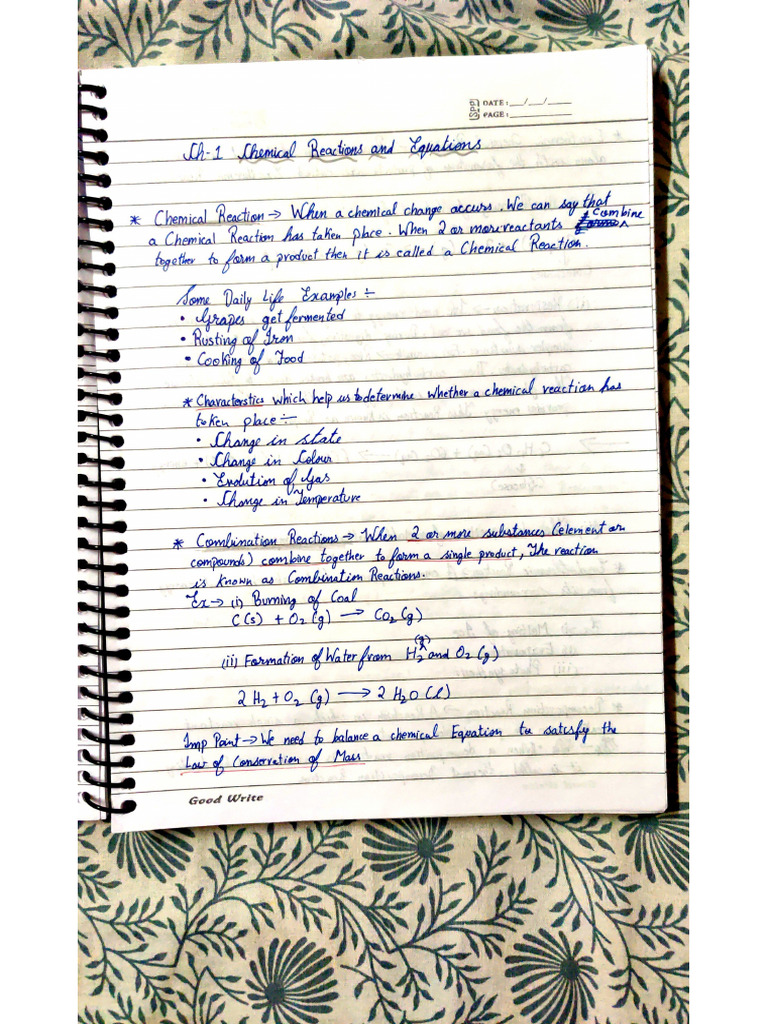 SPB
DATE: __/__/____
PAGE: __________
Ch-1 Chemical Reactions and Equations
* Chemical Reaction → When a chemical change occurs. We can say that
a Chemical Reaction has taken place. When 2 or more reactants combine
together to form a product then it is called a Chemical Reaction.
Some Daily Life Examples ÷
• Grapes get fermented
• Rusting of Iron
• Cooking of Food
* Characterstics which help us to determine whether a chemical reaction has
taken place ÷
• Change in state
• Change in Colour
• Evolution of Gas
• Change in Temperature
* Combination Reactions → When 2 or more substances (element or
compounds) combine together to form a single product, The reaction
is known as Combination Reactions.
Ex → (i) Burning of Coal
C(s) + O₂(g) → CO₂(g)
(ii) Formation of Water from H₂(g) and O₂(g)
2H₂ + O₂(g) → 2H₂O(l)
Imp Point → We need to balance a chemical Equation to satisfy the
Law of Conservation of Mass
Good Write